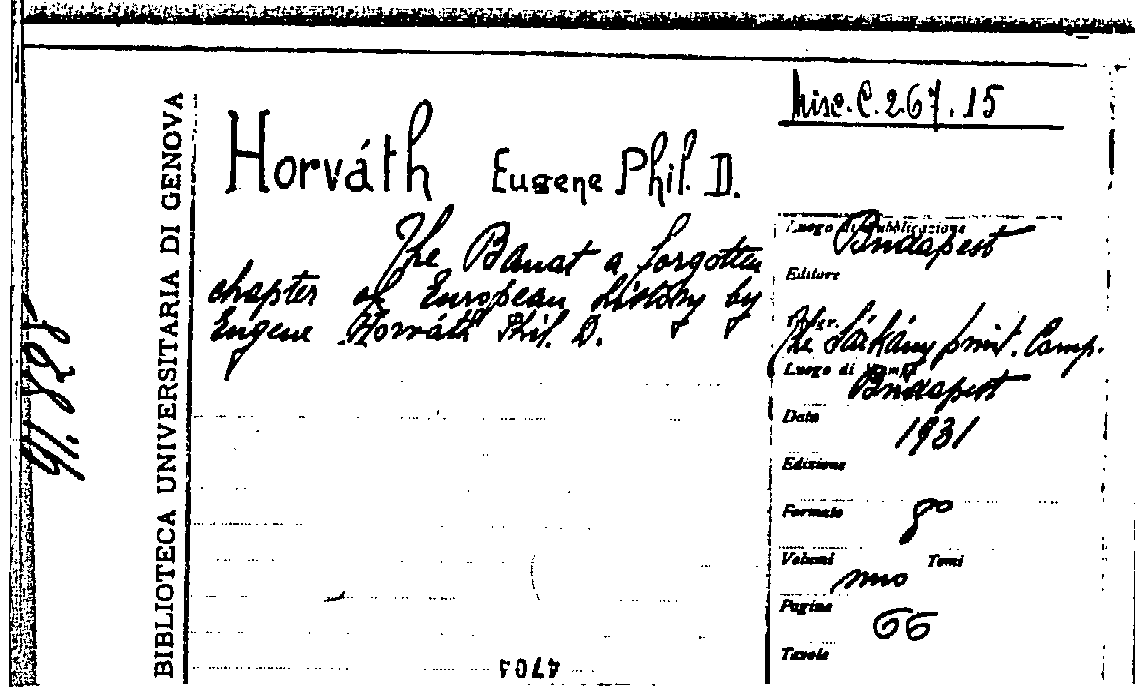 Misc. C. 267. 15
BIBLIOTECA UNIVERSITARIA DI GENOVA
Horváth Eugene Phil. D.
The Banat a forgotten
chapter of European history by
Eugene Horváth Phil. D.
Luogo di pubblicazione
Budapest
Editore
Tipogr.
The Sárkány print. Comp.
Luogo di stampa
Budapest
Data
1931
Edizione
Formato 8°
Volumi Tomi
uno
Pagine
66
Tavole